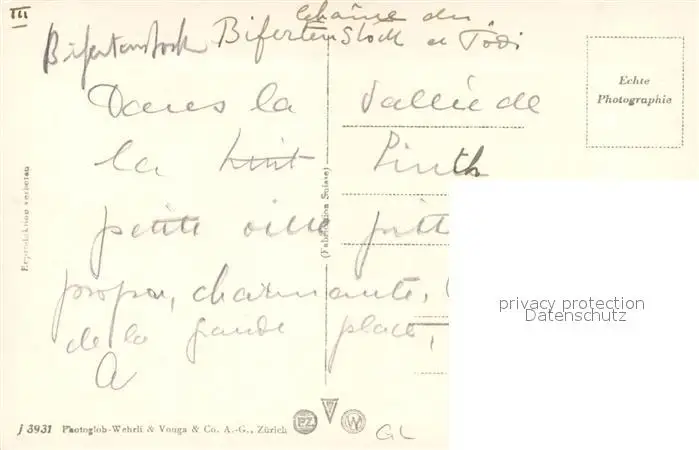 III
Chaîne du
Bifertenstock Bifertenstock et Tödi
Dans la Vallée de
la Lint Linth
petite ville
propre, charmante,
de la grande place,
A
Echte
Photographie
Reproduktion verboten
(Fabrication Suisse)
privacy protection
Datenschutz
J 3931 Photoglob-Wehrli & Vouga & Co. A.-G., Zürich
PZ
W
GL